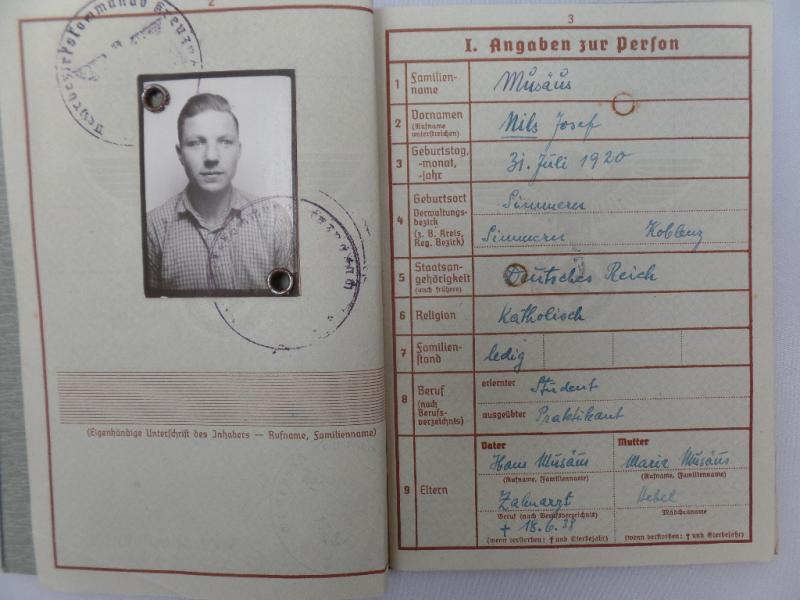 2
Wehrbezirkskommando Kreuznach
(Eigenhändige Unterschrift des Inhabers — Rufname, Familienname)
3
I. Angaben zur Person
1 Familien-
name
Musäus
2 Vornamen
(Rufname
unterstreichen)
Nils Josef
3 Geburtstag,
-monat,
-jahr
31. Juli 1920
4 Geburtsort
Verwaltungs-
bezirk
(z. B. Kreis,
Reg. Bezirk)
Simmern
Simmern Koblenz
5 Staatsan-
gehörigkeit
(auch frühere)
Deutsches Reich
6 Religion
Katholisch
7 Familien-
stand
ledig
8 Beruf
(nach
Berufs-
verzeichnis)
erlernter Student
ausgeübter Praktikant
9 Eltern
Vater Mutter
Hans Musäus Maria Musäus
(Rufname, Familienname) (Rufname, Familienname)
Zahnarzt Hebel
Beruf (nach Berufsverzeichnis) Mädchenname
† 18.6.38
(wenn verstorben: † und Sterbejahr) (wenn verstorben: † und Sterbejahr)